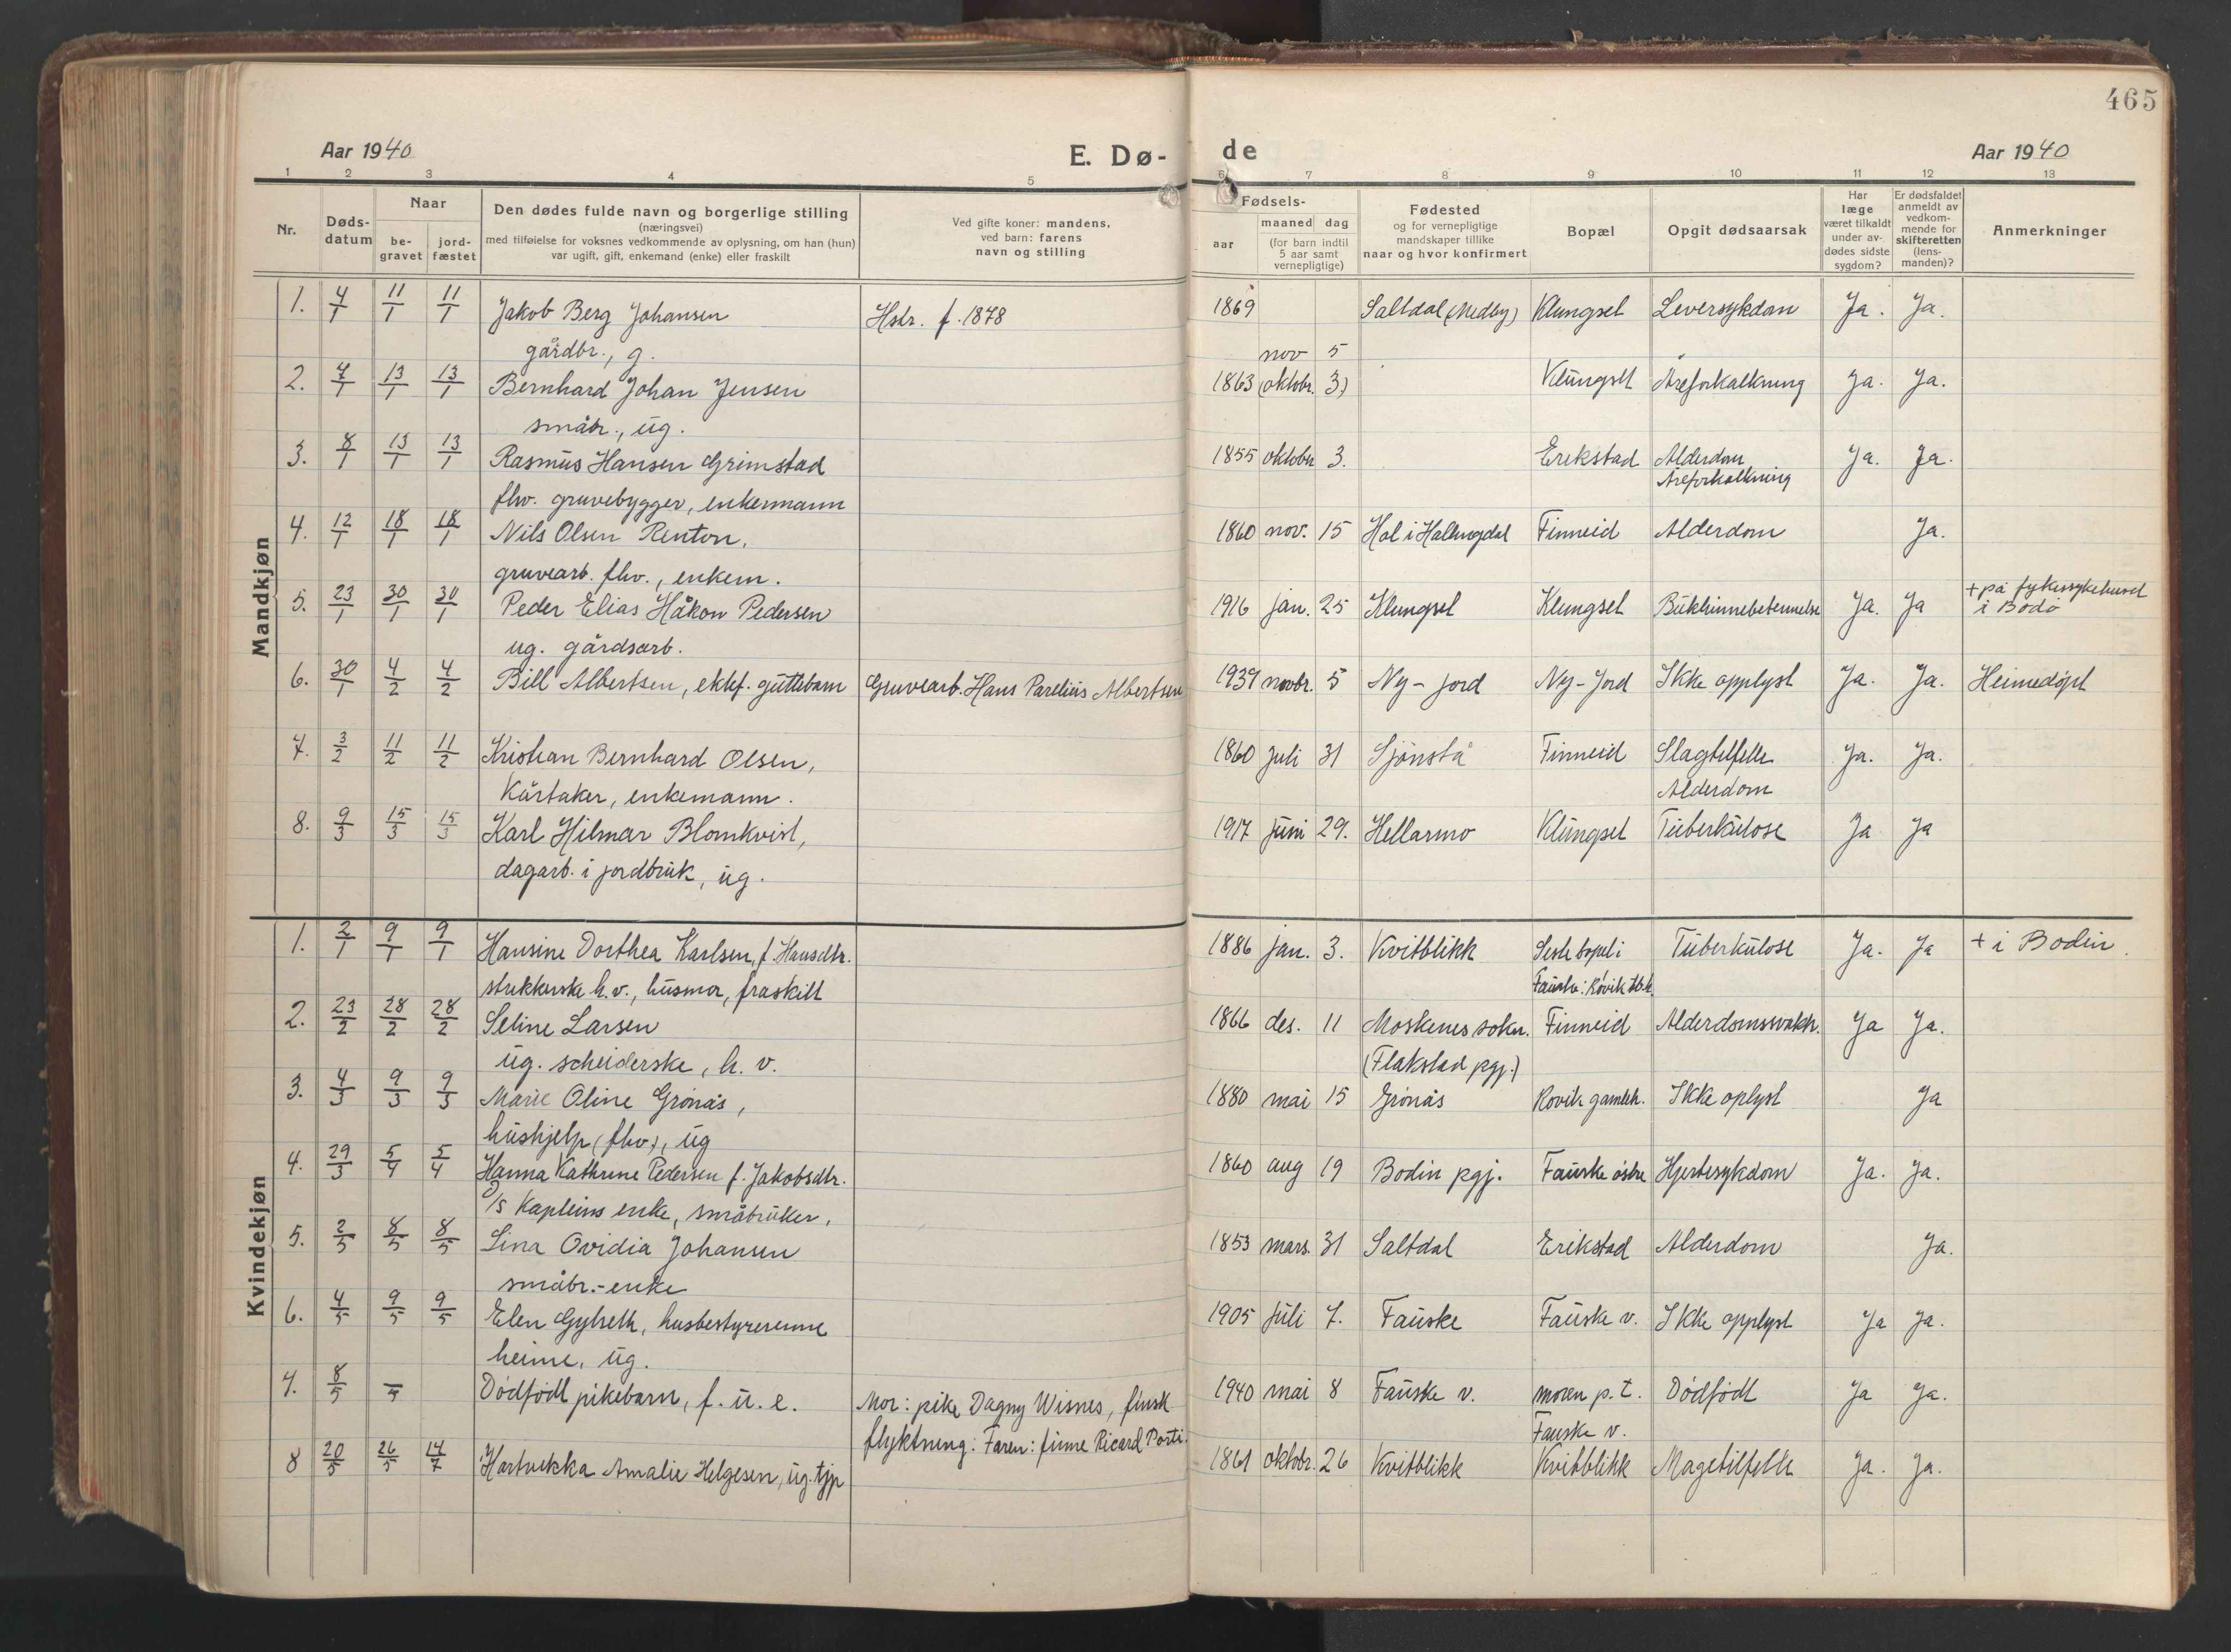 465
Aar 1940
E. Dø-
de
Aar 1940
1 2 3 4 5 6 7 8 9 10 11 12 13
Nr.
Døds-
datum
Naar
be-
gravet
jord-
fæstet
Den dødes fulde navn og borgerlige stilling
(næringsvei)
med tilføielse for voksnes vedkommende av oplysning, om han (hun)
var ugift, gift, enkemand (enke) eller fraskilt
Ved gifte koner: mandens,
ved barn: farens
navn og stilling
Fødsels-
aar
maaned dag
(for barn indtil
5 aar samt
vernepligtige)
Fødested
og for vernepligtige
mandskaper tillike
naar og hvor konfirmert
Bopæl
Opgit dødsaarsak
Har
læge
været tilkaldt
under av-
dødes sidste
sygdom?
Er dødsfaldet
anmeldt av
vedkom-
mende for
skifteretten
(lens-
manden)?
Anmerkninger
Mandkjøn
1. 4/1 11/1 11/1 Jakob Berg Johansen Hstr. f. 1878 1869 Saltdal (Medby) Klungset Leversykdom Ja. Ja.
gårdbr., g.
nov 5
2. 7/1 13/1 13/1 Bernhard Johan Jensen 1863 (oktobr. 3) Klungset Åreforkalkning Ja. Ja.
småbr., ug.
3. 8/1 13/1 13/1 Rasmus Hansen Grimstad 1855 oktobr 3. Erikstad Alderdom Ja. Ja.
Åreforkalkning
fhv. gruvebygger, enkemann
4. 12/1 18/1 18/1 Nils Olsen Renton, 1860 nov. 15 Hol i Hallingdal Finneid Alderdom Ja.
gruvearb. fhv., enkem.
5. 23/1 30/1 30/1 Peder Elias Håkon Pedersen 1916 jan. 25 Klungset Klungset Bukhinnebetennelse Ja. Ja + på fylkessykehuset
i Bodø
ug. gårdsarb.
6. 30/1 4/2 4/2 Bill Albertsen, ektef. guttebarn Gruvearb. Hans Parelius Albertsen 1939 novbr. 5 Ny-jord Ny-Jord Ikke opplyst Ja. Ja. Heimedøpt
7. 3/2 11/2 11/2 Kristian Bernhard Olsen, 1860 juli 31 Sjønstå Finneid Slagtilfelle Ja. Ja.
Kårtaker, enkemann. Alderdom
8. 9/3 15/3 15/3 Karl Hilmar Blomkvist, 1917 juni 29. Hellarmo Klungset Tuberkulose Ja Ja
dagarb. i jordbruk, ug.
Kvindekjøn
1. 2/1 9/1 9/1 Hansine Dorthea Karlsen, f. Hansdtr. 1886 jan. 3. Kvitblikk Siste bopel i Tuberkulose Ja. Ja + i Bodin.
strikkerske h.v., husmor, fraskilt Fauske: Rovik tb.h.
2. 23/2 28/2 28/2 Seline Larsen 1866 des. 11 Moskenes sokn. Finneid Alderdomssvakh. Ja Ja.
ug. scheiderske, h. v. (Flakstad pgj.)
3. 4/3 9/3 9/3 Marie Oline Grønås, 1880 mai 15 Grønås Rovik gamleh. Ikke oplyst Ja
hushjelp (fhv.), ug
4. 29/3 5/4 5/4 Hanna Kathrine Pedersen f. Jakobsdtr. 1860 aug 19 Bodin pgj. Fauske østre Hjertesykdom Ja. Ja.
D/S Kapteins enke, småbruker,
5. 2/5 8/5 8/5 Lina Ovidia Johansen 1853 mars. 31 Saltdal Erikstad Alderdom Ja.
småbr.-enke
6. 4/5 9/5 9/5 Elen Gylseth, husbestyrerinne 1905 juli 7. Fauske Fauske v. Ikke opplyst Ja Ja.
heime, ug.
7. 8/5 –/5 Dødfødt pikebarn, f. u. e. Mor: pike Dagny Wisnes, finsk 1940 mai 8 Fauske v. moren p. t. Dødfødt Ja Ja.
flyktning: Faren: finne Ricard Porti. Fauske v.
8 20/5 26/5 14/7 Hartvikka Amalie Helgesen, ug. tjp 1861 oktobr. 26 Kvitblikk Kvitblikk Magetilfelle Ja. Ja.